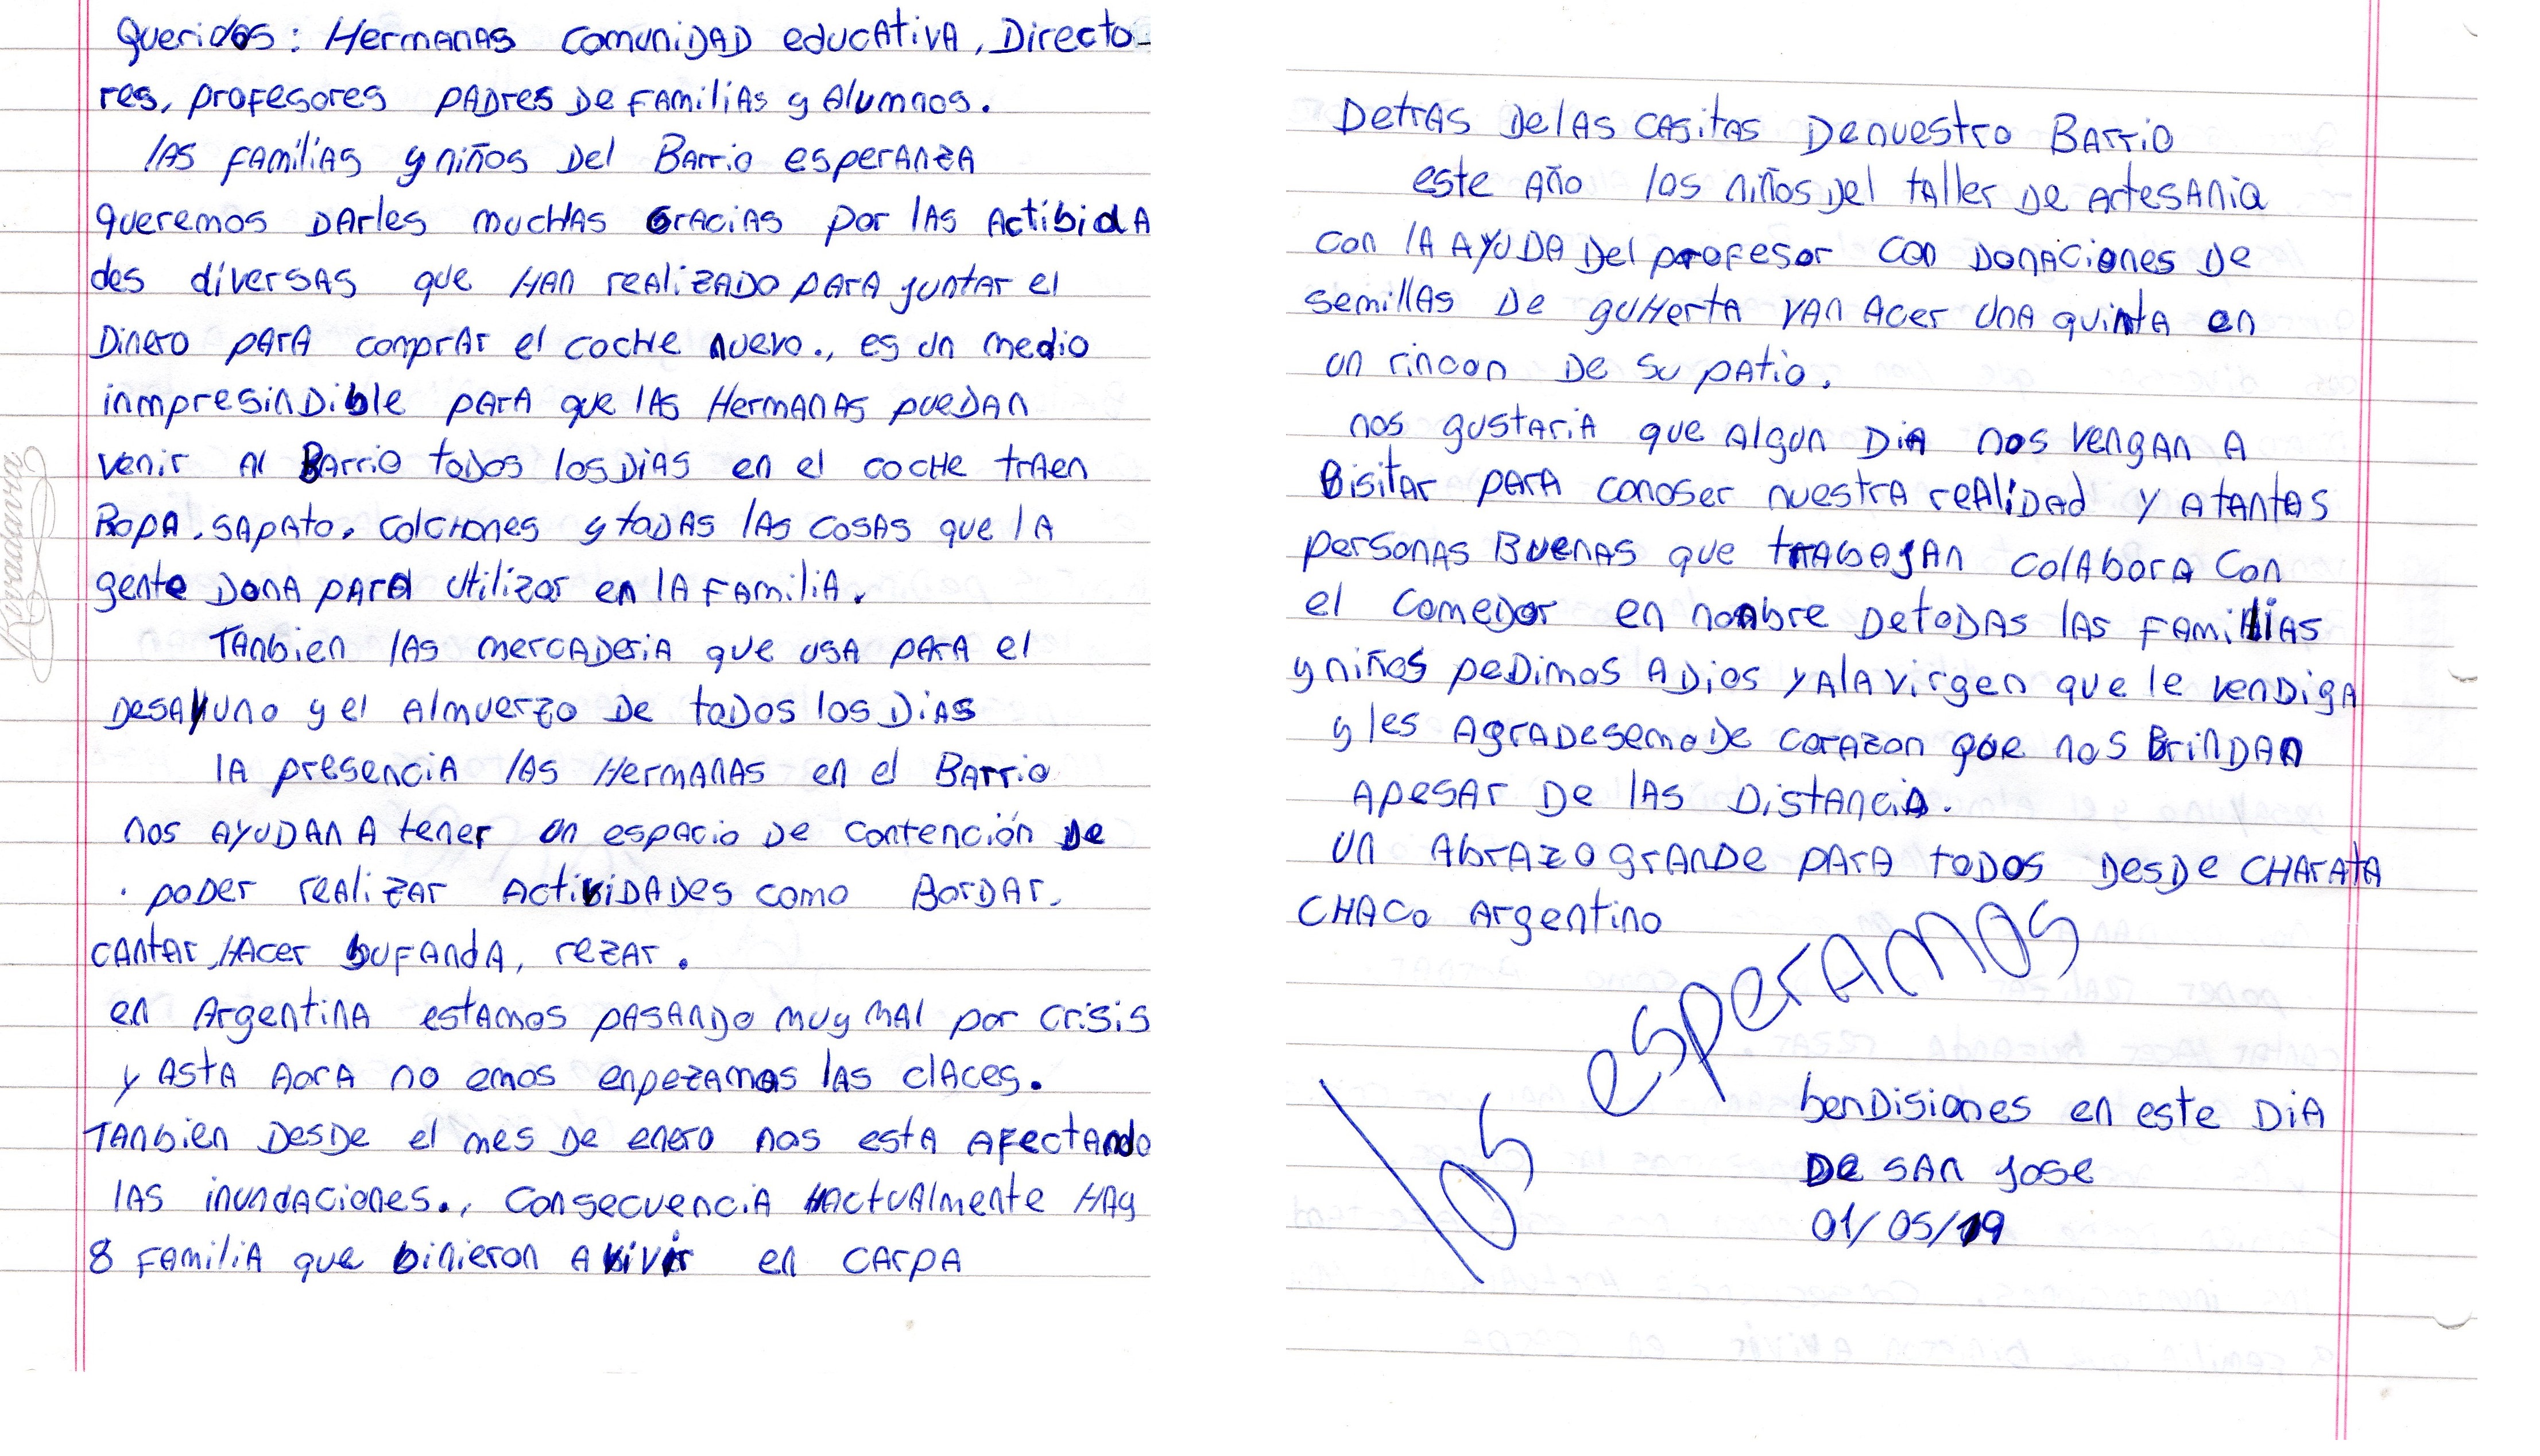 Queridos: Hermanas comunidad educativa, Directo-
res, profesores padres de familias y Alumnos.
las familias y niños del Barrio esperanza
queremos darles muchas Gracias por las Actibida
des diversas que Han realizado para juntar el
Dinero para comprar el coche nuevo., es un medio
inmpresindible para que las Hermanas puedan
venir al Barrio todos los dias en el coche traen
Ropa, sapato, colchones y todas las cosas que la
gente Dona para utilizar en la familia.
Tanbien las mercaderia que usa para el
desayuno y el almuerzo de todos los Dias
la presencia las Hermanas en el Barrio
nos ayudan a tener un espacio de contención de
poder realizar actividades como Bordar,
cantar, Hacer bufanda, rezar.
en Argentina estamos pasando muy mal por crisis
y asta aora no emos enpezamos las claces.
Tanbien desde el mes de enero nos esta afectando
las inundaciones., consecuencia Hactualmente Hay
8 familia que binieron a vivir en carpa
Detras delas casitas denuestro Barrio
este año los niños del taller de artesania
con la ayuda del profesor con donaciones de
semillas de guHerta van acer una quinta en
un rincon de su patio.
nos gustaria que algun dia nos vengan a
Bisitar para conoser nuestra realidad y atantas
personas Buenas que trabajan colabora con
el comedor en nonbre detodas las familias
y niños pedimos adios y ala virgen que le vendiga
y les agradesemode corazon que nos Brindan
apesar de las distancia.
un abrazo grande para todos desde CHarata
CHaco Argentino
los esperamos
bendisiones en este dia
de san jose
01/05/19
Rivadavia